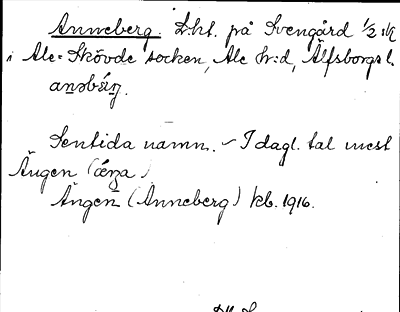 Anneberg. Lht. på Svengård 1/2 
i Ale-Skövde socken, Ale hd, Älfsborgs l.
Sentida namn. - I dagl. tal mest
Ängen
Ängen (Anneberg) kb. 1916.